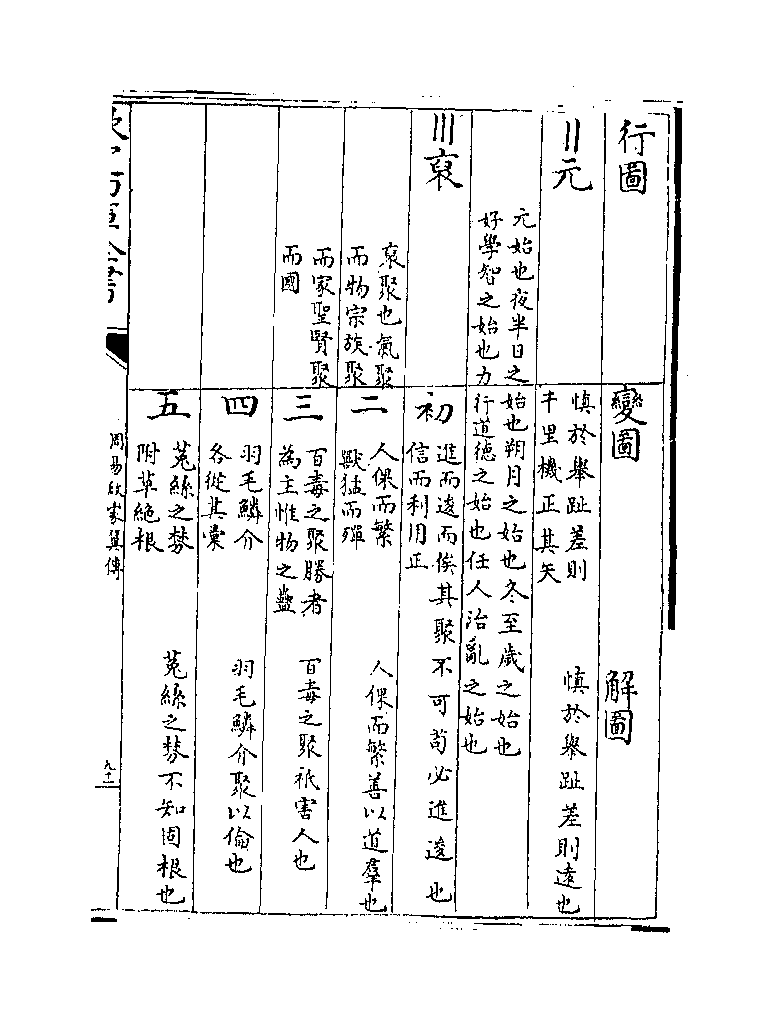 行圖
變圖
解圖
〢元
慎於舉趾差則
千里機正其矢
慎於舉趾差則遠也
元始也夜半日之始也朔月之始也冬至歲之始也
好學智之始也力行道德之始也任人治亂之始也
〣裒
初
進而逡而俟其聚不可苟必進逡也
信而利用正
裒聚也氣聚
而物宗族聚
二
人倮而繁
獸猛而殫
人倮而繁善以道羣也
而家聖賢聚
而國
三
百毒之聚勝者
為主惟物之蠱
百毒之聚祇害人也
四
羽毛鱗介
各從其黨
羽毛鱗介聚以倫也
五
菟絲之棼
附草絶根
菟絲之棼不知固根也
周易啟蒙翼傳